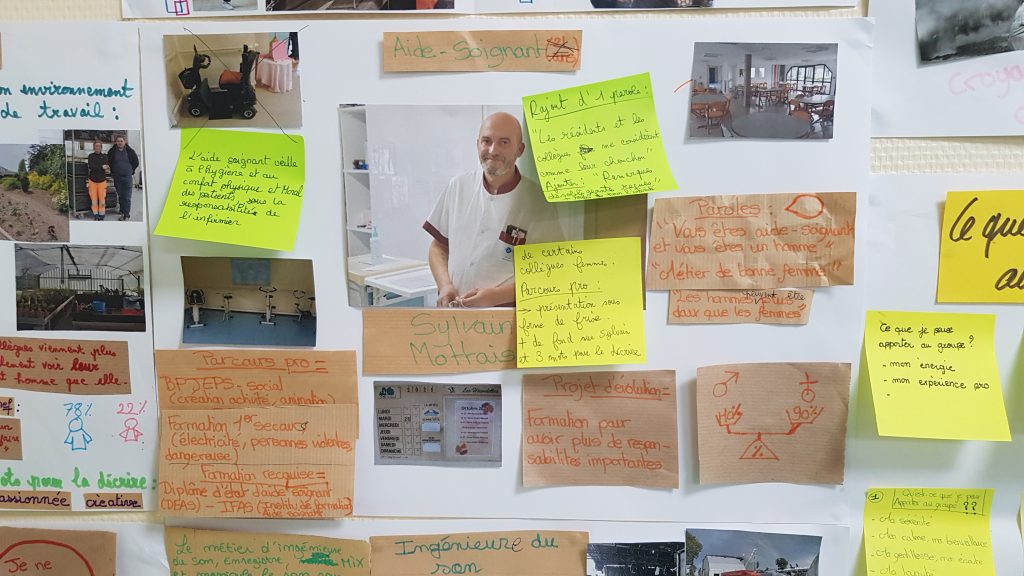 Aide-Soignant
on environnement
de travail :
L'aide soignant veille
à l'hygiène et au
confort physique et Moral
des patients sous la
responsabilité de
l'infirmier
Rajout d'1 parole :
"Les résidents et les
collègues me considèrent
comme leur chouchou"
Ajouter : "Remarques
de certain
collègues femme.
Parcours pro :
→ présentation sous
forme de frise.
+ de fond sur Sylvain
et 3 mot pour le décrire
Paroles
"Vous êtes aide-soignant
et vous êtes un homme"
"Métier de bonne femme"
"Les hommes peuvent être
doux que les femmes"
Sylvain
Mottais
Parcours pro =
BPJEPS - social
(création activité, animation)
Formation 1er secours
(électricité, personnes violentes,
dangereuse)
Formation requise =
Diplôme d'état d'aide soignant
(DEAS) - IFAS (Institut de formation
Aide soignant
LUNDI
MARDI
MERCREDI
JEUDI
VENDREDI
SAMEDI
DIMANCHE
Projet d'évolution =
Formation pour
avoir plus de respon-
sabilités importantes
10%
90%
llègues viennent plus
lement voir leur
t homme que elle.
78%
22%
ots pour la décrire :
assionnée
créative
Je ne
Le métier d'ingénieure
du son, enregistre, MIX
Ingénieure du
son
Croya
Ce que
au
Ce que je peux
apporter au groupe ?
- mon énergie
- mon expérience pro
-
1
Qu'est-ce que je peux
Apporter au groupe ??
- Ma sérénité
- Ma calme, ma bienveillance
- Ma gentillesse, mon écoute